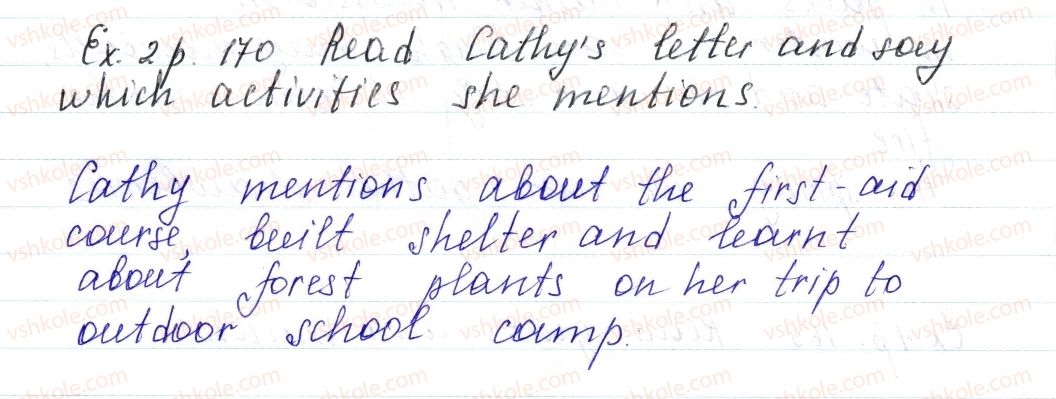 Ex. 2 p. 170 Read Cathy's letter and say
which activities she mentions.
Cathy mentions about the first-aid
course, built shelter and learnt
about forest plants on her trip to
outdoor school camp.